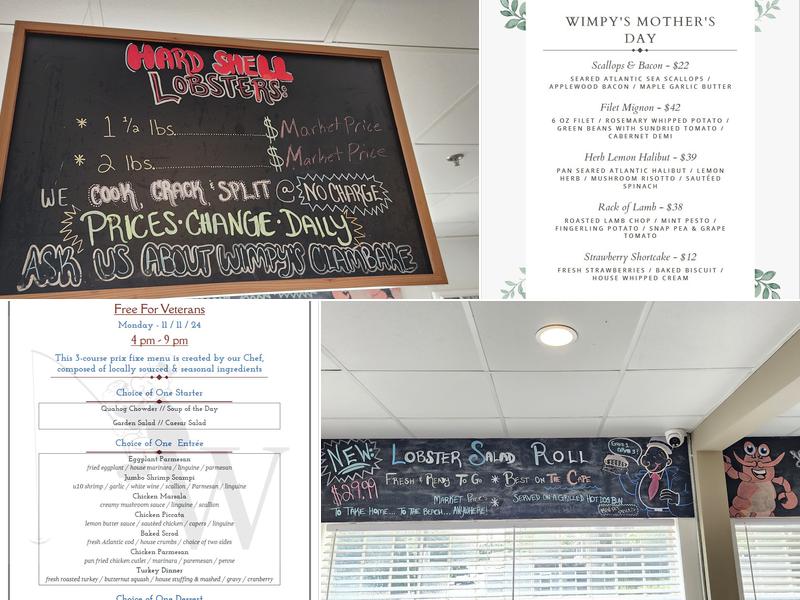 HARD SHELL
LOBSTERS:
* 1 1/2 lbs................$ Market Price
* 2 lbs................$ Market Price
WE COOK, CRACK & SPLIT @ NO CHARGE
PRICES · CHANGE · DAILY
ASK US ABOUT WIMPY'S CLAMBAKE
WIMPY'S MOTHER'S
DAY
Scallops & Bacon - $22
SEARED ATLANTIC SEA SCALLOPS /
APPLEWOOD BACON / MAPLE GARLIC BUTTER
Filet Mignon - $42
6 OZ FILET / ROSEMARY WHIPPED POTATO /
GREEN BEANS WITH SUNDRIED TOMATO /
CABERNET DEMI
Herb Lemon Halibut - $39
PAN SEARED ATLANTIC HALIBUT / LEMON
HERB / MUSHROOM RISOTTO / SAUTÉED
SPINACH
Rack of Lamb - $38
ROASTED LAMB CHOP / MINT PESTO /
FINGERLING POTATO / SNAP PEA & GRAPE
TOMATO
Strawberry Shortcake - $12
FRESH STRAWBERRIES / BAKED BISCUIT /
HOUSE WHIPPED CREAM
Free For Veterans
Monday - 11 / 11 / 24
4 pm - 9 pm
This 3-course prix fixe menu is created by our Chef,
composed of locally sourced & seasonal ingredients
Choice of One Starter
Quahog Chowder // Soup of the Day
Garden Salad // Caesar Salad
Choice of One Entrée
Eggplant Parmesan
fried eggplant / house marinara / linguine / parmesan
Jumbo Shrimp Scampi
u10 shrimp / garlic / white wine / scallion / Parmesan / linguine
Chicken Marsala
creamy mushroom sauce / linguine / scallion
Chicken Piccata
lemon butter sauce / sautéed chicken / capers / linguine
Baked Scrod
fresh Atlantic cod / house crumbs / choice of two sides
Chicken Parmesan
pan fried chicken cutlet / marinara / parmesan / penne
Turkey Dinner
fresh roasted turkey / butternut squash / house stuffing & mashed / gravy / cranberry
Choice of One Dessert
NEW: LOBSTER SALAD ROLL
$29.99 FRESH & READY TO GO * BEST ON THE CAPE
MARKET PRICE * SERVED ON A GRILLED HOT DOG BUN
TO TAKE HOME... TO THE BEACH... ANYWHERE!